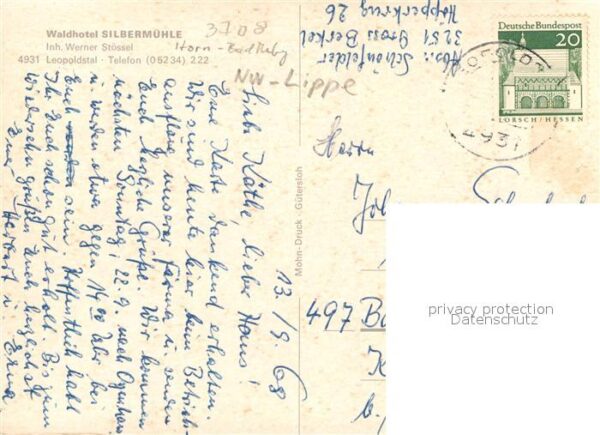 Waldhotel SILBERMÜHLE
Inh. Werner Stössel
4931 Leopoldstal · Telefon (05234) 222
3708
Horn-Bad
NW-Lippe
Abn. Schönfelder
3251 Gross Berkel
Höpperkring 26
Deutsche Bundespost
20
LORSCH/HESSEN
4931
13./9.68
Liebe Käthe, lieber Hans!
Eure Karte dankend erhalten.
Wir sind heute hier beim Betriebs-
ausflug unserer Firma u. senden
Euch herzliche Grüße. Wir kommen
nächsten Sonntag, 22.9. nach
u. werden etwa gegen 14.00 Uhr bei
Euch sein. Hoffentlich habt
Ihr Euch schon gut erholt. Bis zum
Wiedersehn grüßen auch herzlichst
Eure Herbert u. Erna
Mohn-Druck Gütersloh
Herrn
497 Ba
privacy protection
Datenschutz